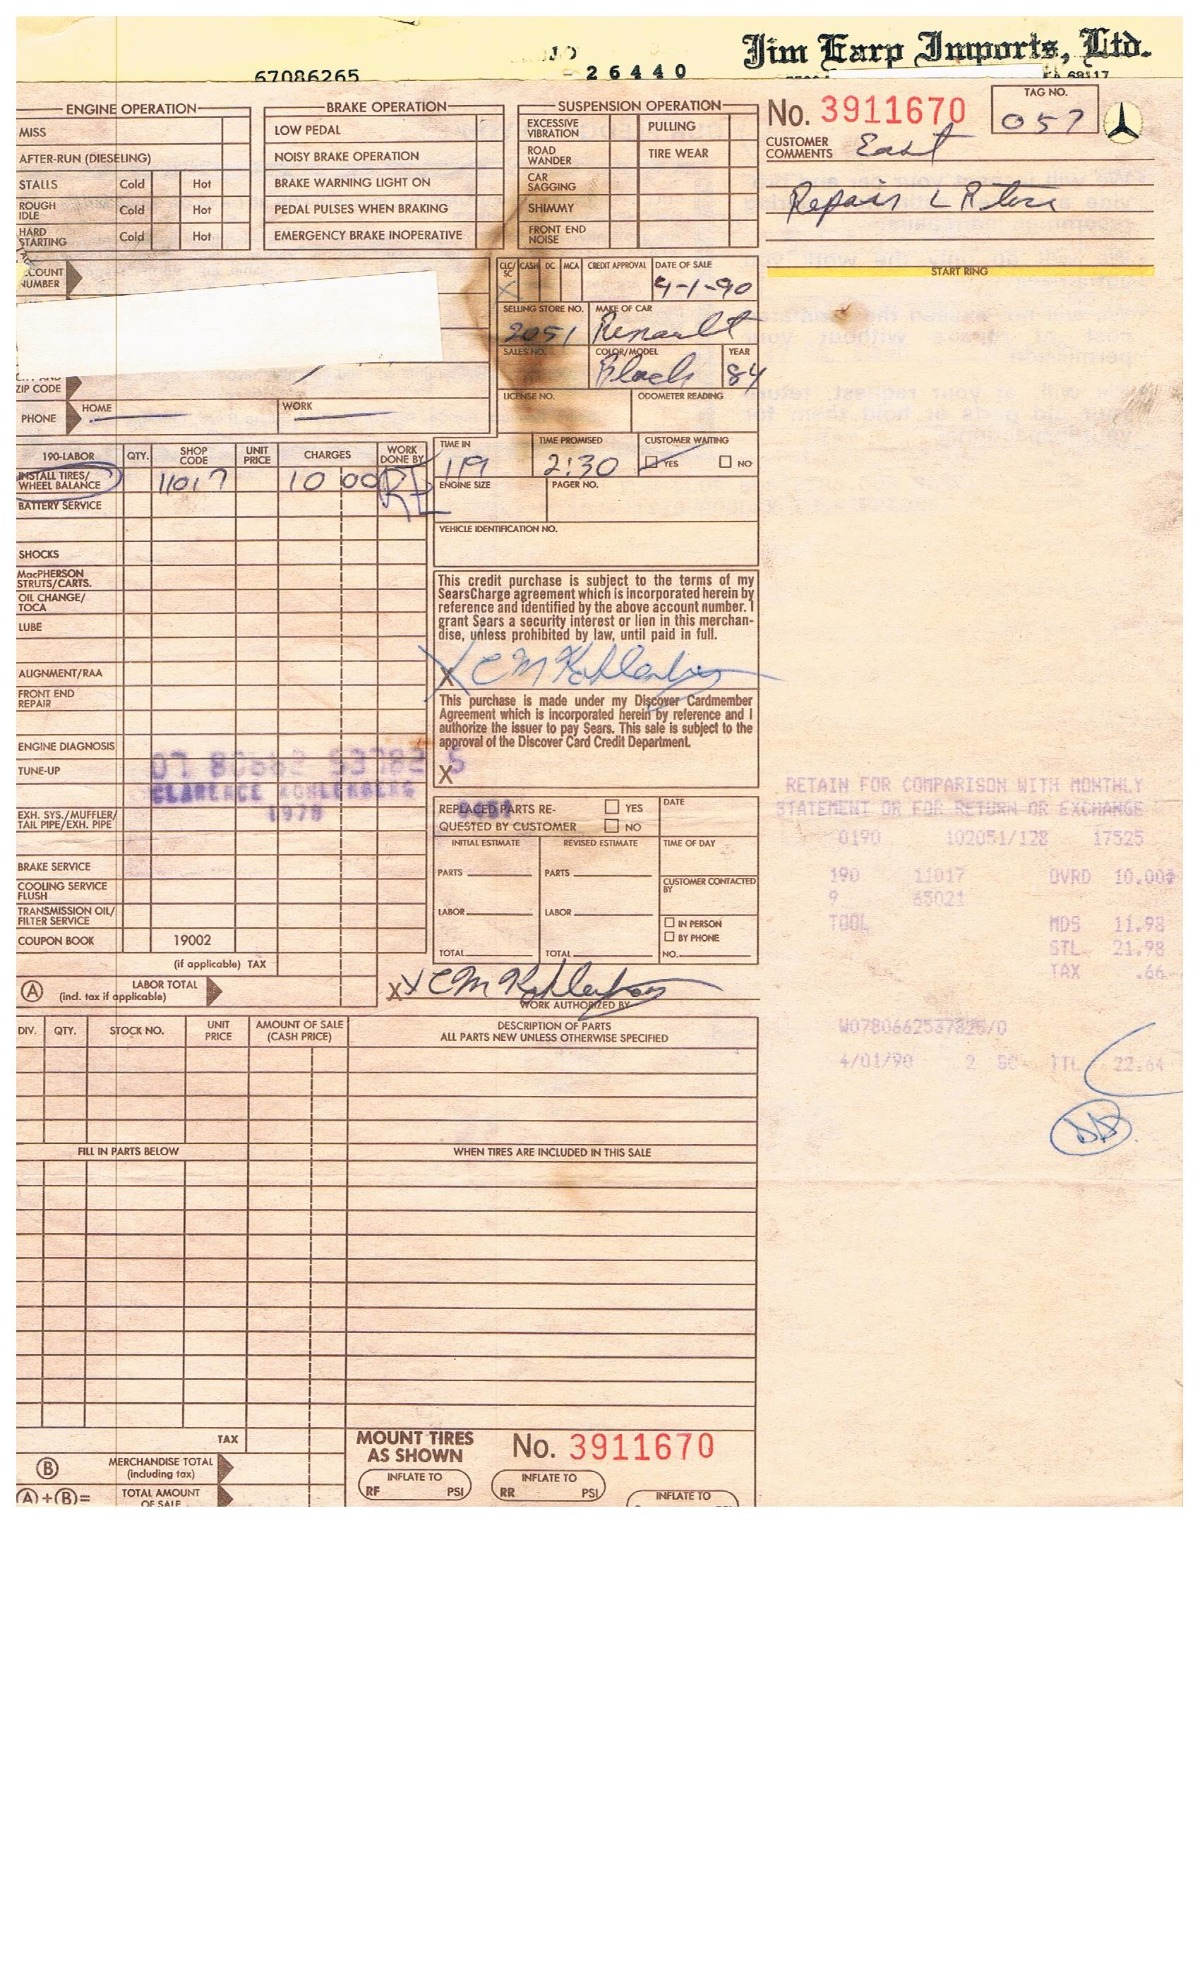 Jim Earp Imports, Ltd.
67086265
26440
68117
ENGINE OPERATION
MISS
AFTER-RUN (DIESELING)
STALLS Cold Hot
ROUGH IDLE Cold Hot
HARD STARTING Cold Hot
BRAKE OPERATION
LOW PEDAL
NOISY BRAKE OPERATION
BRAKE WARNING LIGHT ON
PEDAL PULSES WHEN BRAKING
EMERGENCY BRAKE INOPERATIVE
SUSPENSION OPERATION
EXCESSIVE VIBRATION PULLING
ROAD WANDER TIRE WEAR
CAR SAGGING
SHIMMY
FRONT END NOISE
No. 3911670
TAG NO.
057
CUSTOMER COMMENTS East
Repair L R
START RING
NUMBER
ZIP CODE
PHONE HOME WORK
CLC/SC CASH DC MCA CREDIT APPROVAL DATE OF SALE
X 4-1-90
SELLING STORE NO. MAKE OF CAR
2051 Renault
SALES NO. COLOR/MODEL YEAR
Black 84
LICENSE NO. ODOMETER READING
TIME IN TIME PROMISED CUSTOMER WAITING
119 2:30 YES NO
ENGINE SIZE PAGER NO.
VEHICLE IDENTIFICATION NO.
190-LABOR QTY. SHOP CODE UNIT PRICE CHARGES WORK DONE BY
INSTALL TIRES/ WHEEL BALANCE 11017 10 00
BATTERY SERVICE
SHOCKS
MacPHERSON STRUTS/CARTS.
OIL CHANGE/ TOCA
LUBE
ALIGNMENT/RAA
FRONT END REPAIR
ENGINE DIAGNOSIS
TUNE-UP
EXH. SYS./MUFFLER/ TAIL PIPE/EXH. PIPE
BRAKE SERVICE
COOLING SERVICE FLUSH
TRANSMISSION OIL/ FILTER SERVICE
COUPON BOOK 19002
(if applicable) TAX
A LABOR TOTAL (incl. tax if applicable)
This credit purchase is subject to the terms of my
SearsCharge agreement which is incorporated herein by
reference and identified by the above account number. I
grant Sears a security interest or lien in this merchan-
dise, unless prohibited by law, until paid in full.
X C M Kohlenberg
This purchase is made under my Discover Cardmember
Agreement which is incorporated herein by reference and I
authorize the issuer to pay Sears. This sale is subject to the
approval of the Discover Card Credit Department.
X
07 80662 53782 5
CLARENCE KOHLENBERG
1978
REPLACED PARTS RE-
QUESTED BY CUSTOMER
YES
NO
DATE
INITIAL ESTIMATE REVISED ESTIMATE TIME OF DAY
PARTS PARTS
CUSTOMER CONTACTED BY
LABOR LABOR
IN PERSON
BY PHONE
TOTAL TOTAL NO.
X X C M Kohlenberg
WORK AUTHORIZED BY
RETAIN FOR COMPARISON WITH MONTHLY
STATEMENT OR FOR RETURN OR EXCHANGE
0190 102051/128 17525
190 11017 OVRD 10.00
9 65021
TOOL MDS 11.98
STL 21.98
TAX .66
W0780662537825/0
4/01/90 2 SC TTL 22.64
DIV. QTY. STOCK NO. UNIT PRICE AMOUNT OF SALE (CASH PRICE)
DESCRIPTION OF PARTS
ALL PARTS NEW UNLESS OTHERWISE SPECIFIED
FILL IN PARTS BELOW
WHEN TIRES ARE INCLUDED IN THIS SALE
TAX
B MERCHANDISE TOTAL (including tax)
A + B = TOTAL AMOUNT OF SALE
MOUNT TIRES
AS SHOWN
No. 3911670
INFLATE TO RF PSI
INFLATE TO RR PSI
INFLATE TO